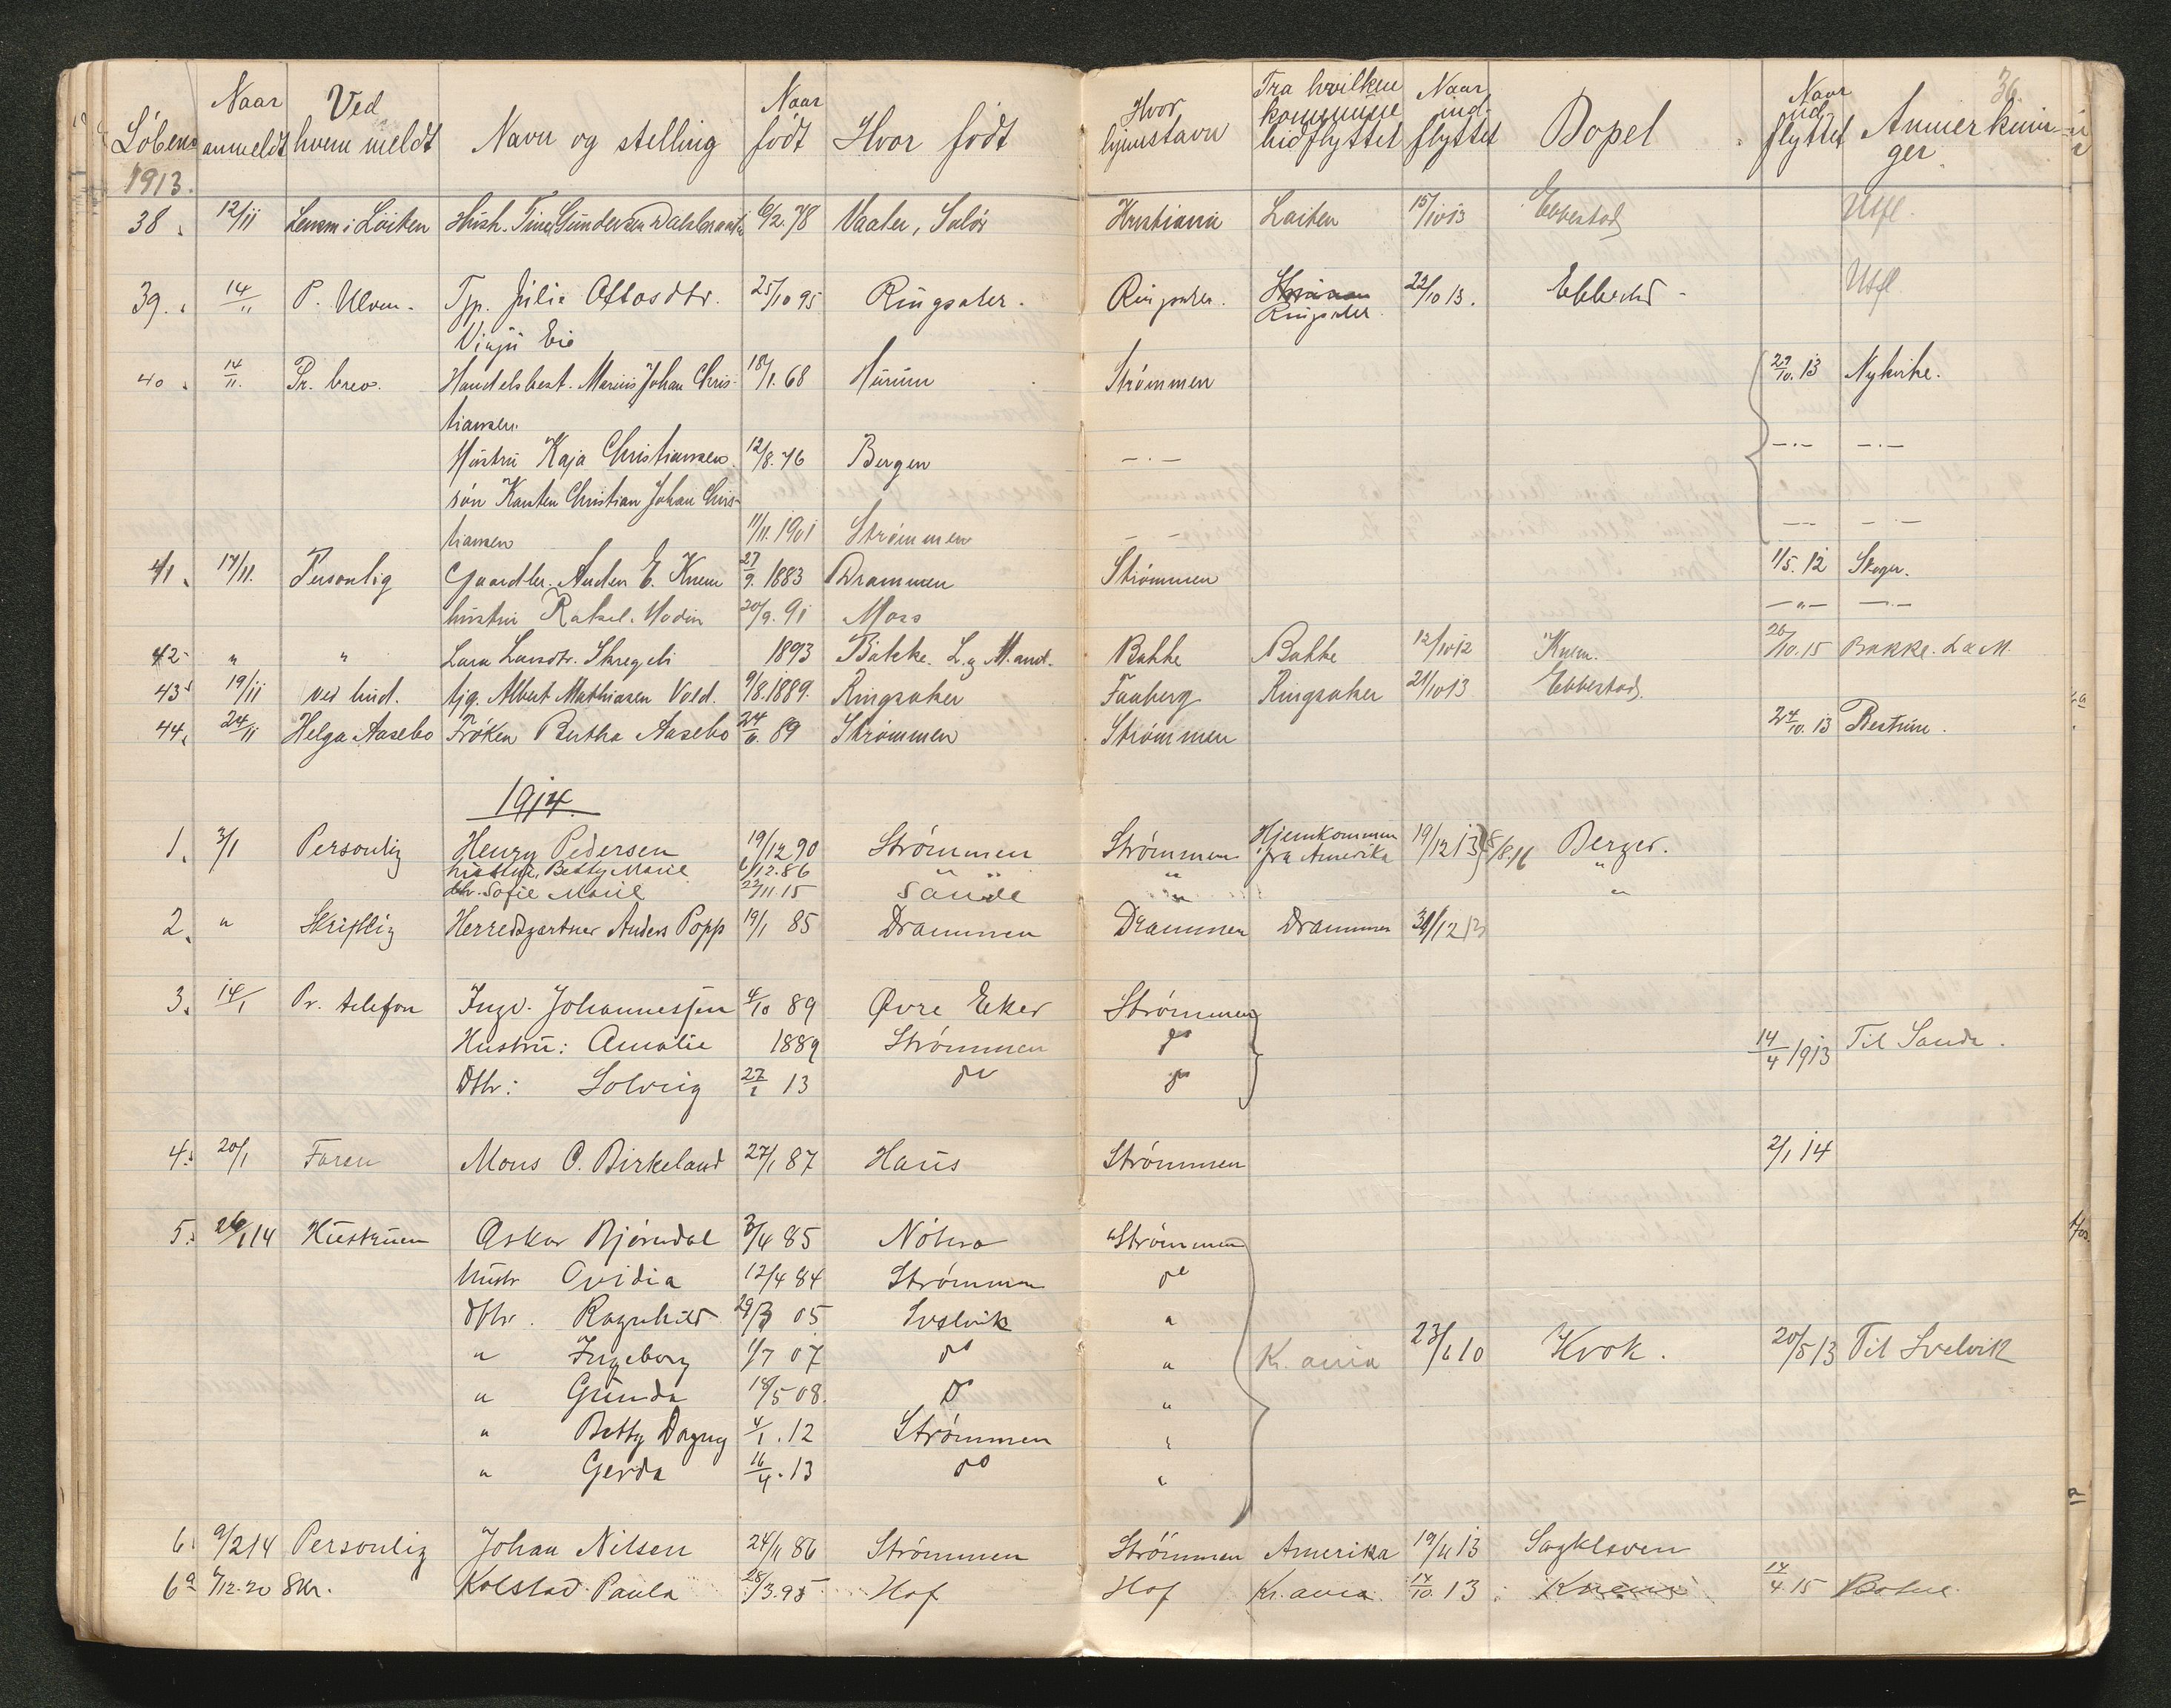 36.
Løbeno Naar anmeldt Ved hvem meldt Navn og stelling Naar født Hvor født Hvor hjemstavn Fra hvilken kommune hidflyttet Naar ind-flyttet Bopel Naar ud flyttet Anmerkninger
1913.
38. 12/11 Lensm i Löiten Hush. Tine Gundersen 6/2.78 Vaaler, Solör Kristiania Löiten 15/10 13 Ebbestad Utfl.
39. 14/11 P. Ulven. Tjp. Julie Ottosdtr. 25/10 95 Ringsaker. Ringsaker. 22/10 13. Ebbestad Utfl
Ringsaker.
Eie
40. 14/11. Pr. brev. Handelsbest. Marius Johan Chris- 18/1.68 Hurum Strømmen 29/10.13 Nykirke.
tiansen.
Hustru Kaja Christiansen. 12/8.76 Bergen —„— —„— —„—
søn Karsten Christian Johan Chris-
tiansen 11/11.1901 Strømmen — — — — — —
41. 14/11. Personlig Gaardbr. Anders E. Knem 27/9.1883 Drammen Strømmen 1/5.12 Skoger.
hustru Rakel. Modin 20/9.91 Moss —„— —„—
42 " " Lara Larsdtr. Skregeli 1893 Bakke. L. g M. amt. Bakke Bakke 12/10 12 Knem. 26/10.15 Bakke. L & M.
43 19/11 ved bud. tjg. Albert Mathiasen Vold. 9/8.1889. Ringsaker Faaberg Ringsaker 21/10 13 Ebbestad.
44. 24/11 Helga Aasebo Frøken Bertha Aasebo 24/6.89 Strømmen Strømmen 24/10.13 Restrup.
1914.
1. 3/1 Personlig Henry Pedersen 19/12 90 Strømmen Strømmen Hjemkommen fra Amerika 19/12 13 /8.16 Berger.
hustru, Betty Marie 6/12.86 " " "
dtr. Sofie Marie 22/11.15 Sande " "
2. " Skriftlig Herredsgartner Anders Popp 19/1 85 Drammen Drammen Drammen 31/12 13
3. 14/1 Pr. telefon Ingv. Johannessen 4/10 89 Øvre Eker Strømmen
Hustru: Amalie 1889 Strømmen do 14/4 1913 Til Sande.
Dtr: Solveig 27/1 13 do do
4. 20/1 Faren Mons O. Birkeland 27/1 87 Haus Strømmen 2/1 14
5. 26/1 14 Hustruen Oskar Bjørndal 3/4 85 Nøtterø Strømmen
hustr Ovidia 12/4 84 Strømmen do
dtr. Ragnhild 29/3 05 Svelvik "
" Ingeborg 1/7 07 do " Kr.ania 23/6 10 Krok. 20/5 13 Til Svelvik
" Gunda 18/5 08. do "
" Betty Dagny 4/1.12 Strømmen "
" Gerda 16/4.13 do "
6. 9/2 14 Personlig Johan Nilsen 24/11 86 Strømmen Strømmen Amerika 19/11 13 Sagkleven
6a 6/12.20 Skr. Kolstad Paula 28/3.95 Hof Hof Kr.ania. 14/10.13 Knem 14/4.15 Botne